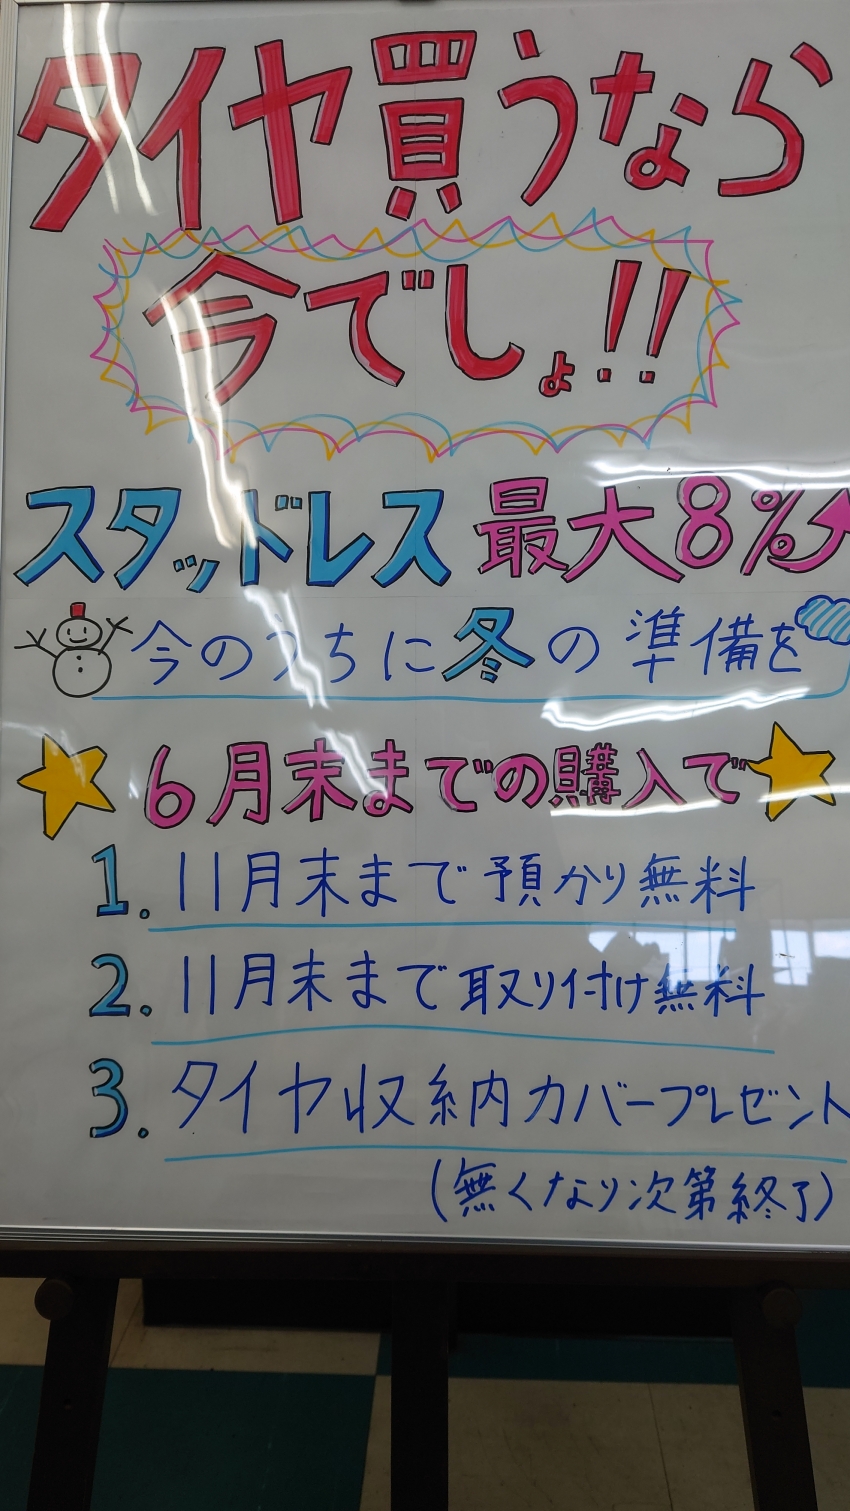 タイヤ買うなら
今でしょ!!
スタッドレス 最大8%
今のうちに冬の準備を
6月末までの購入で
1. 11月末まで預かり無料
2. 11月末まで取り付け無料
3. タイヤ収納カバープレゼント
(無くなり次第終了)